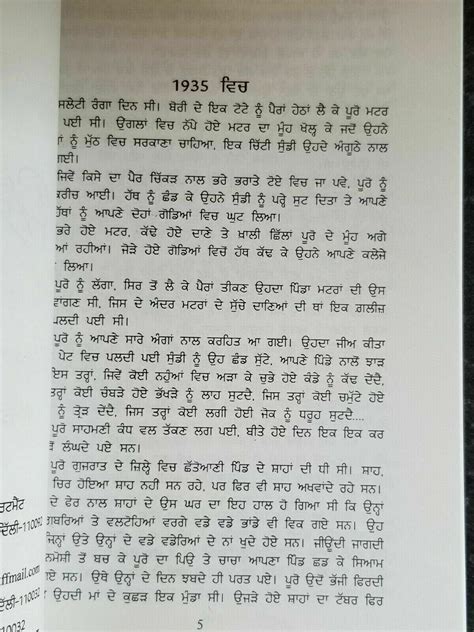 1935 ਵਿਚ
ਸਲੇਟੀ ਰੰਗਾ ਦਿਨ ਸੀ। ਬੋਰੀ ਦੇ ਇਕ ਟੋਟੇ ਨੂੰ ਪੈਰਾਂ ਹੇਠਾਂ ਲੈ ਕੇ ਪੂਰੋ ਮਟਰ
ਪਈ ਸੀ। ਉਂਗਲਾਂ ਵਿਚ ਨੱਪੇ ਹੋਏ ਮਟਰ ਦਾ ਮੂੰਹ ਖੋਲ੍ਹ ਕੇ ਜਦੋਂ ਉਹਨੇ
ਨੂੰ ਮੁੱਠ ਵਿਚ ਸਰਕਾਣਾ ਚਾਹਿਆ, ਇਕ ਚਿੱਟੀ ਸੁੰਡੀ ਉਹਦੇ ਅੰਗੂਠੇ ਨਾਲ
ਗਈ।
ਜਿਵੇਂ ਕਿਸੇ ਦਾ ਪੈਰ ਚਿੱਕੜ ਨਾਲ ਭਰੇ ਭਰਾਤੇ ਟੋਏ ਵਿਚ ਜਾ ਪਵੇ, ਪੂਰੋ ਨੂੰ
ਕਰੀਚ ਆਈ। ਹੱਥ ਨੂੰ ਛੰਡ ਕੇ ਉਹਨੇ ਸੁੰਡੀ ਨੂੰ ਪਰ੍ਹੇ ਸੁਟ ਦਿਤਾ ਤੇ ਆਪਣੇ
ਹੱਥਾਂ ਨੂੰ ਆਪਣੇ ਦੋਹਾਂ ਗੋਡਿਆਂ ਵਿਚ ਘੁਟ ਲਿਆ।
ਭਰੇ ਹੋਏ ਮਟਰ, ਕੱਢੇ ਹੋਏ ਦਾਣੇ ਤੇ ਖ਼ਾਲੀ ਛਿੱਲਾਂ ਪੂਰੋ ਦੇ ਮੂੰਹ ਅਗੇ
ਆਂ ਰਹੀਆਂ। ਜੋੜੇ ਹੋਏ ਗੋਡਿਆਂ ਵਿਚੋਂ ਹੱਥ ਕੱਢ ਕੇ ਉਹਨੇ ਆਪਣੇ ਕਲੇਜੇ
ਲਿਆ।
ਪੂਰੋ ਨੂੰ ਲੱਗਾ, ਸਿਰ ਤੋਂ ਲੈ ਕੇ ਪੈਰਾਂ ਤੀਕਣ ਉਹਦਾ ਪਿੰਡਾ ਮਟਰਾਂ ਦੀ ਉਸ
ਵਾਂਗਣ ਸੀ, ਜਿਸ ਦੇ ਅੰਦਰ ਮਟਰਾਂ ਦੇ ਸੁੱਚੇ ਦਾਣਿਆਂ ਦੀ ਥਾਂ ਇਕ ਗ਼ਲੀਜ਼
ਪਲਦੀ ਪਈ ਸੀ।
ਪੂਰੋ ਨੂੰ ਆਪਣੇ ਸਾਰੇ ਅੰਗਾਂ ਨਾਲ ਕਰਹਿਤ ਆ ਗਈ। ਉਹਦਾ ਜੀਅ ਕੀਤਾ
ਪੇਟ ਵਿਚ ਪਲਦੀ ਪਈ ਸੁੰਡੀ ਨੂੰ ਉਹ ਛੰਡ ਸੁੱਟੇ, ਆਪਣੇ ਪਿੰਡੇ ਨਾਲੋਂ ਝਾੜ
ਇਸ ਤਰ੍ਹਾਂ, ਜਿਵੇਂ ਕੋਈ ਨਹੁੰਆਂ ਵਿਚ ਅੜਾ ਕੇ ਚੁਭੇ ਹੋਏ ਕੰਡੇ ਨੂੰ ਕੱਢ ਦੇਂਦੈ,
ਤਰ੍ਹਾਂ ਕੋਈ ਚੰਬੜੇ ਹੋਏ ਭੱਖੜੇ ਨੂੰ ਲਾਹ ਸੁਟਦੈ, ਜਿਸ ਤਰ੍ਹਾਂ ਕੋਈ ਚਮੁੱਟੇ ਹੋਏ
ਨੂੰ ਤ੍ਰੋੜ ਦੇਂਦੈ, ਜਿਸ ਤਰ੍ਹਾਂ ਕੋਈ ਲਗੀ ਹੋਈ ਜੋਕ ਨੂੰ ਧਰੂਹ ਸੁਟਦੈ....
ਪੂਰੋ ਸਾਹਮਣੀ ਕੰਧ ਵਲ ਤੱਕਣ ਲਗ ਪਈ, ਬੀਤੇ ਹੋਏ ਦਿਨ ਇਕ ਇਕ ਕਰ
ਲੰਘਦੇ ਪਏ ਸਨ।
ਪੂਰੋ ਗੁਜਰਾਤ ਦੇ ਜ਼ਿਲ੍ਹੇ ਵਿਚ ਛੱਤੋਆਣੀ ਪਿੰਡ ਦੇ ਸ਼ਾਹਾਂ ਦੀ ਧੀ ਸੀ। ਸ਼ਾਹ,
ਚਿਰ ਹੋਇਆ ਸ਼ਾਹ ਨਹੀਂ ਸਨ ਰਹੇ, ਪਰ ਫਿਰ ਵੀ ਸ਼ਾਹ ਅਖਵਾਂਦੇ ਰਹੇ ਸਨ।
ਦੇ ਫੇਰ ਨਾਲ ਸ਼ਾਹਾਂ ਦੇ ਉਸ ਘਰ ਦਾ ਇਹ ਹਾਲ ਹੋ ਗਿਆ ਸੀ ਕਿ ਉਨ੍ਹਾਂ
ਗਬਰਿਆਂ ਤੇ ਵਲਟੋਹਿਆਂ ਵਰਗੇ ਵਡੇ ਵਡੇ ਭਾਂਡੇ ਵੀ ਵਿਕ ਗਏ ਸਨ। ਉਹ
ਜਿਨ੍ਹਾਂ ਉਤੇ ਉਨ੍ਹਾਂ ਦੇ ਵਡੇ ਵਡੇਰਿਆਂ ਦੇ ਨਾਂ ਖੁਦੇ ਹੋਏ ਸਨ। ਜੀਊਂਦੀ ਜਾਗਦੀ
ਨਮੋਸ਼ੀ ਤੋਂ ਬਚ ਕੇ ਪੂਰੋ ਦਾ ਪਿਓ ਤੇ ਚਾਚਾ ਆਪਣਾ ਪਿੰਡ ਛਡ ਕੇ ਸਿਆਮ
ਗਏ ਸਨ। ਉਥੇ ਉਨ੍ਹਾਂ ਦੇ ਦਿਨ ਝਬਦੇ ਹੀ ਪਰਤ ਪਏ। ਪੂਰੋ ਉਦੋਂ ਭੱਜੀ ਫਿਰਦੀ
ਉਹਦੀ ਮਾਂ ਦੇ ਕੁਛੜ ਇਕ ਮੁੰਡਾ ਸੀ। ਉਜੜੇ ਹੋਏ ਸ਼ਾਹਾਂ ਦਾ ਟੱਬਰ ਫਿਰ
5
ਦਿੱਲੀ-110092
ffmail.com
ਦਿੱਲੀ-110032